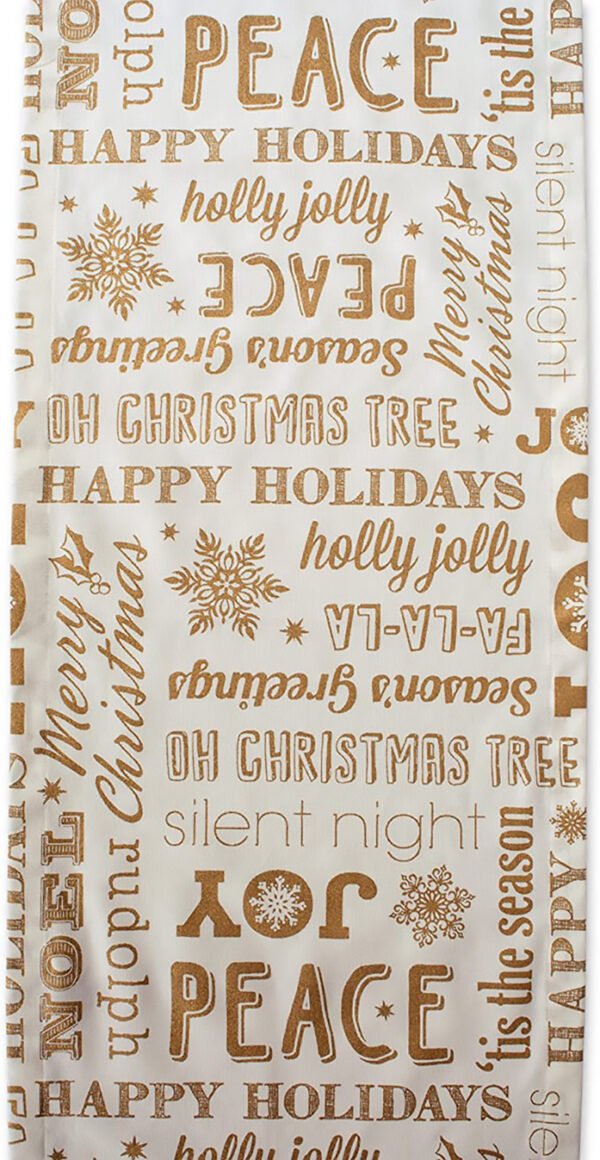 NO
dolph
PEACE
'tis the
HAP
HAPPY HOLIDAYS
silent night
holly jolly
Merry
Christmas
PEACE
Season's Greetings
OH CHRISTMAS TREE
JO
HAPPY HOLIDAYS
holly jolly
Merry
Christmas
FA-LA-LA
JOY
Season's Greetings
OH CHRISTMAS TREE
silent night
HOLIDAYS
NOEL
rudolph
JOY
'tis the season
HAPPY
PEACE
HAPPY HOLIDAYS
sile
holly jolly